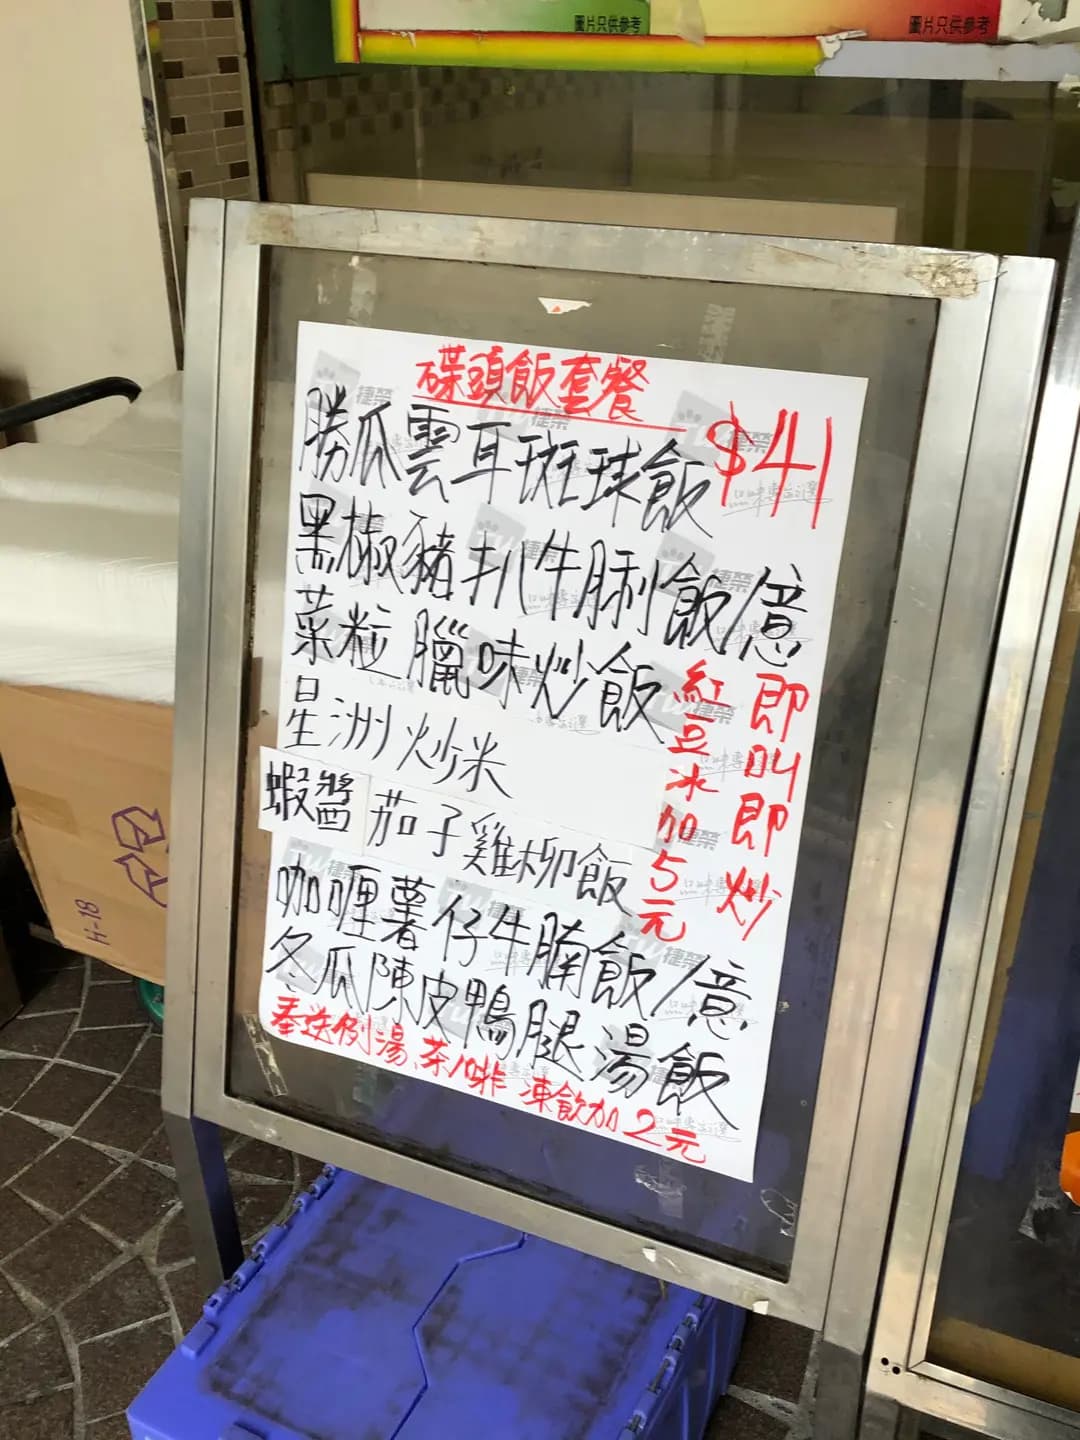 圖片只供參考
圖片只供參考
碟頭飯套餐 $41
勝瓜雲耳斑球飯
黑椒豬扒牛脷飯/意
菜粒臘味炒飯
星洲炒米
蝦醬茄子雞柳飯
咖喱薯仔牛腩飯/意
冬瓜陳皮鴨腿湯飯
紅豆冰加5元
即叫即炒
奉送例湯、茶/啡 凍飲加2元
捷榮
H-18